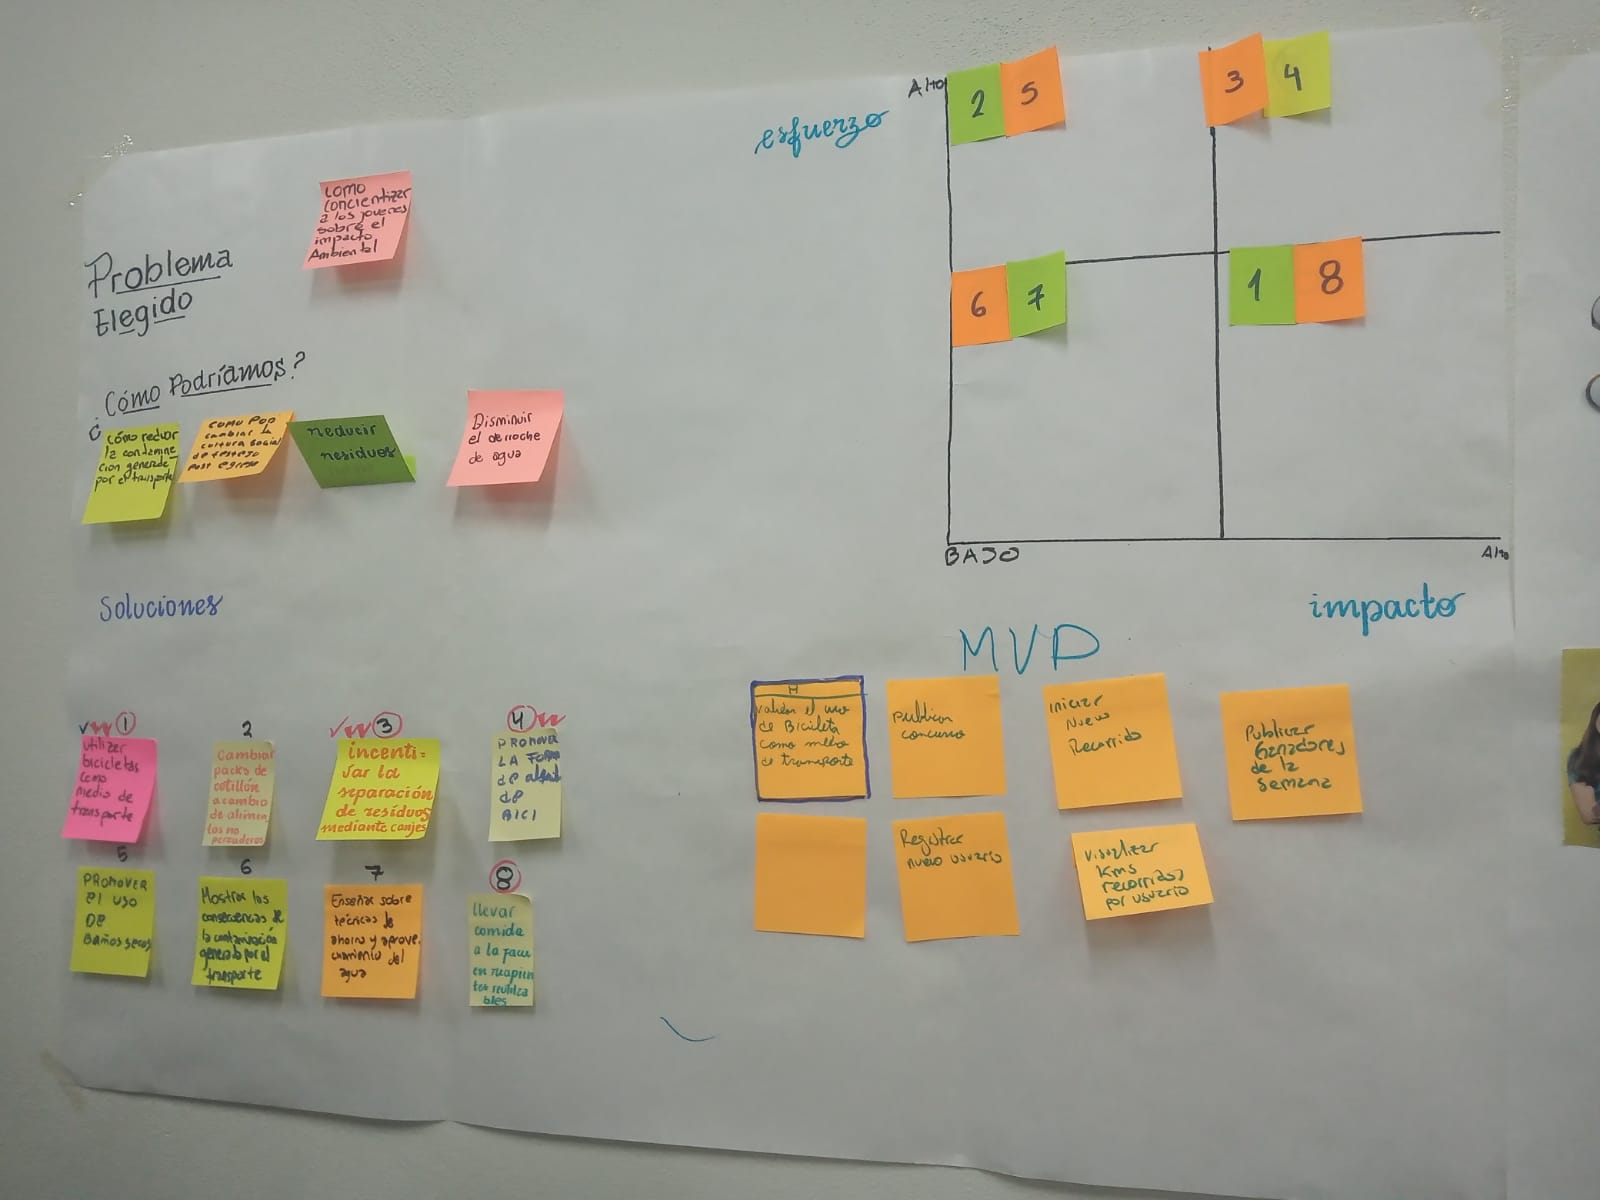 Problema
Elegido
como
concientizar
a los jovenes
sobre el
impacto
Ambiental
¿Cómo Podríamos?
cómo reducir
la contamina
cion generada
por el transporte
como POD
cambiar la
cultura social
de festejo
post egreso
Reducir
residuos
Disminuir
el derroche
de agua
Soluciones
1
utilizar
bicicletas
como
medio de
transporte
2
Cambiar
packs de
cotillón
a cambio
de alimen
tos no
perecederos
3
incenti-
var la
separación
de residuos
mediante canjes
4
PROMOVER
LA FORMA
de
de
BICI
5
PROMOVER
el uso
DE
Baños secos
6
Mostrar las
consecuencias de
la contaminación
generada por el
transporte
7
Enseñar sobre
técnicas de
ahorro y aprove
chamiento del
agua
8
llevar
comida
a la facu
en recipien
tes reutiliza
bles
esfuerzo
Alto
2 5
3 4
6 7
1 8
BAJO
Alto
impacto
MVP
H
validar el uso
de Bicicleta
como medio
de transporte
publicar
concurso
iniciar
Nuevo
Recorrido
Publicar
Ganadores
de la
semana
Registrar
nuevo usuario
visualizar
Kms
recorridos
por usuario